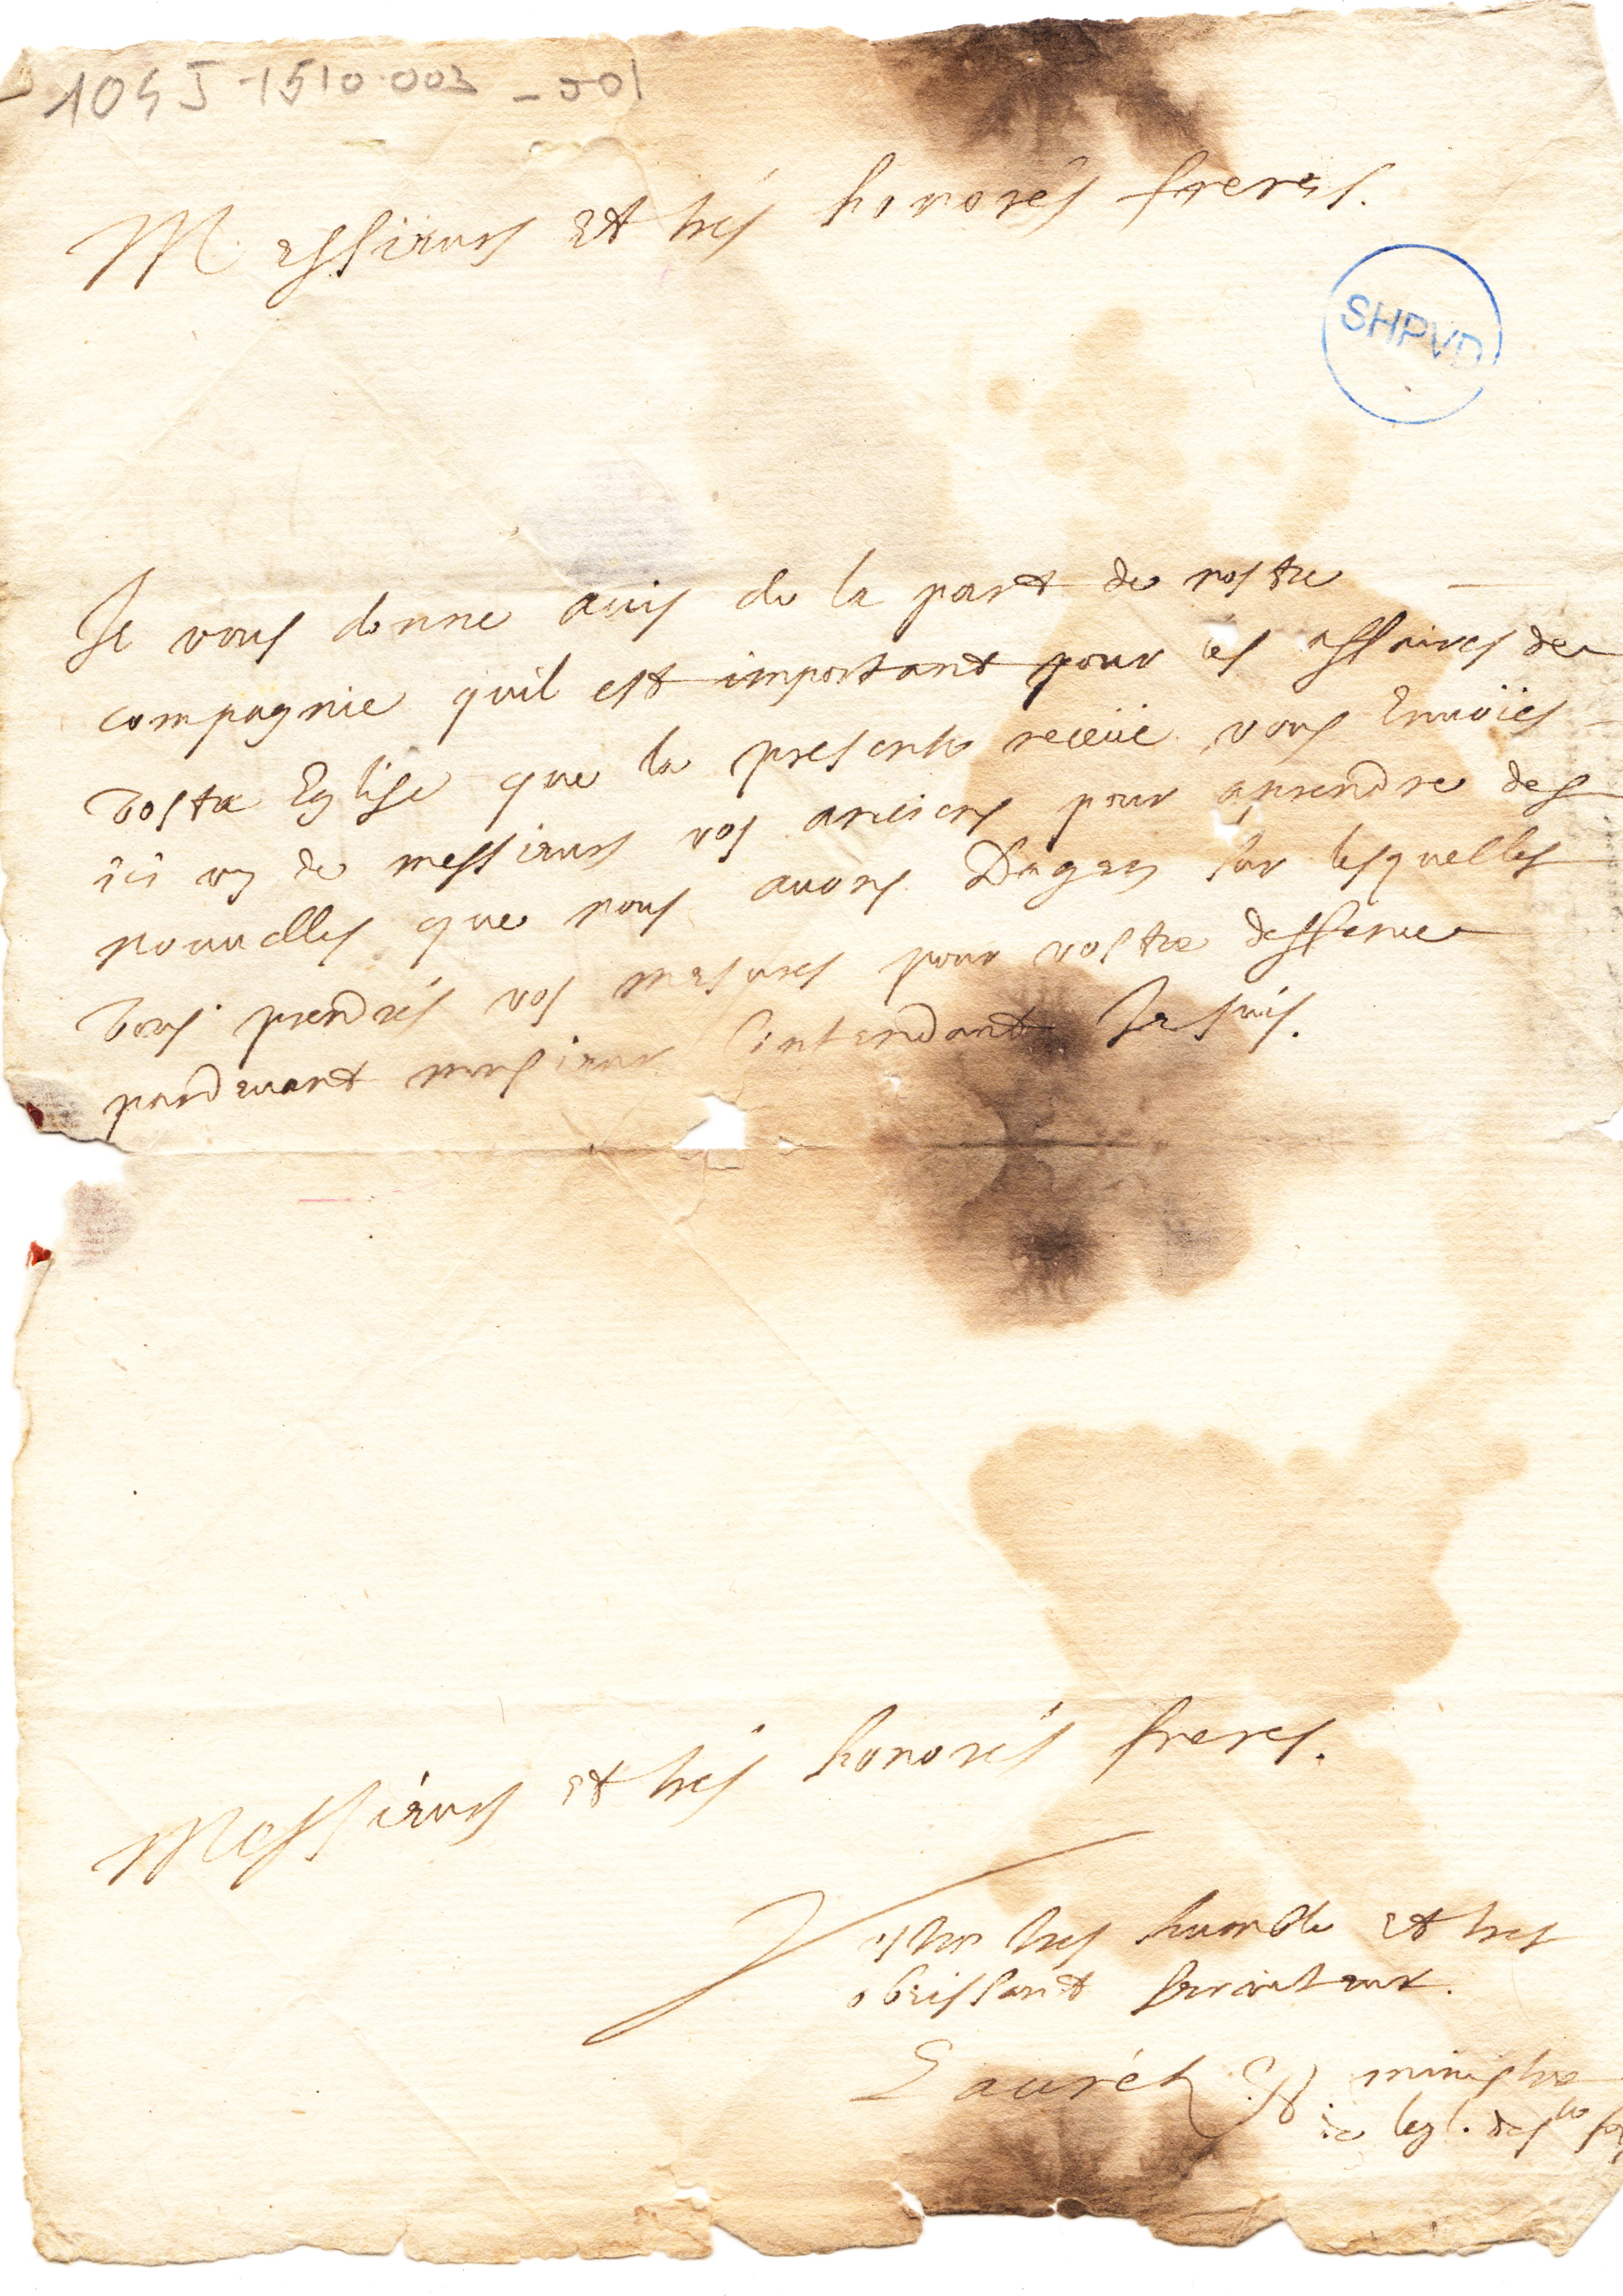 104 J-1510-003 _ 001
Messieurs et tres honorés freres.
SHPVD
Je vous donne avis de la part de nostre
compagnie quil est important pour les affaires de
vostre Eglise que la presente receüe vous Envoiés
ici un de messieurs vos anciens pour aprendre des
nouvelles que nous avons Dagen sur lesquelles
vous prendrés vos mesures pour vostre deffence
pardevant monsieur l'intendant Je suis.
Messieurs et tres honorés freres.
Vostre tres humble et tres
obeissant serviteur.
ministre